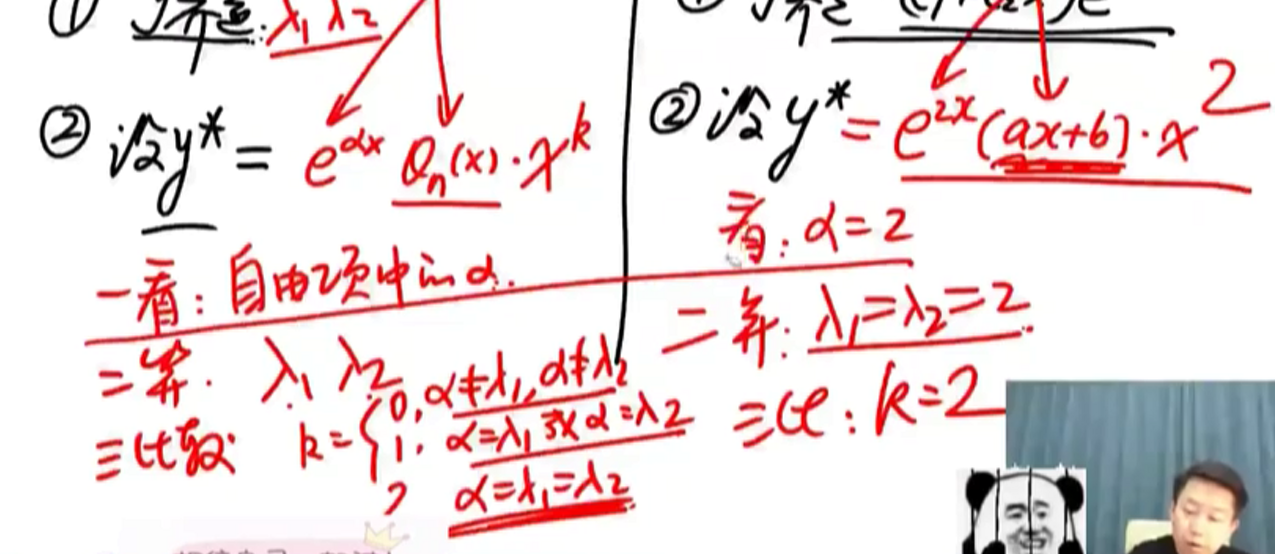 ① 齐通: λ₁ λ₂
② 设y* = e^{αx} Qₙ(x)·x^k
一看: 自由项中in α.
二算: λ₁ λ₂
三比较: k = { 0, α≠λ₁, α≠λ₂
1, α=λ₁或α=λ₂
2 α=λ₁=λ₂
② 设y* = e^{2x}(ax+b)·x²
一看: α=2
二算: λ₁=λ₂=2.
三比: k=2